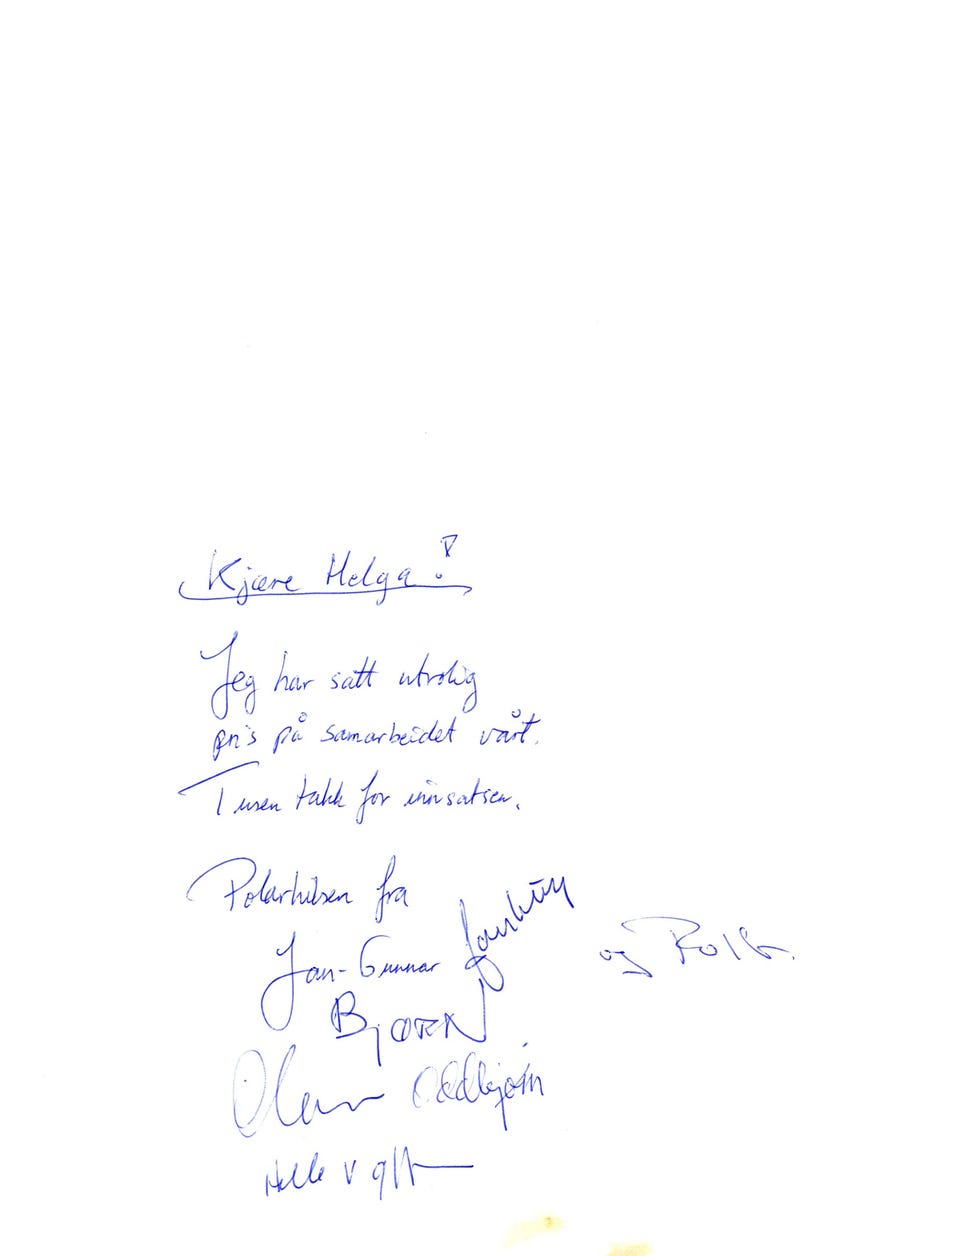 Kjære Helga!
Jeg har satt utrolig
pris på samarbeidet vårt.
Tusen takk for innsatsen.
Polarhilsen fra
Jan-Gunnar
og Rolf
BJØRN
Oddbjørn
Helle V